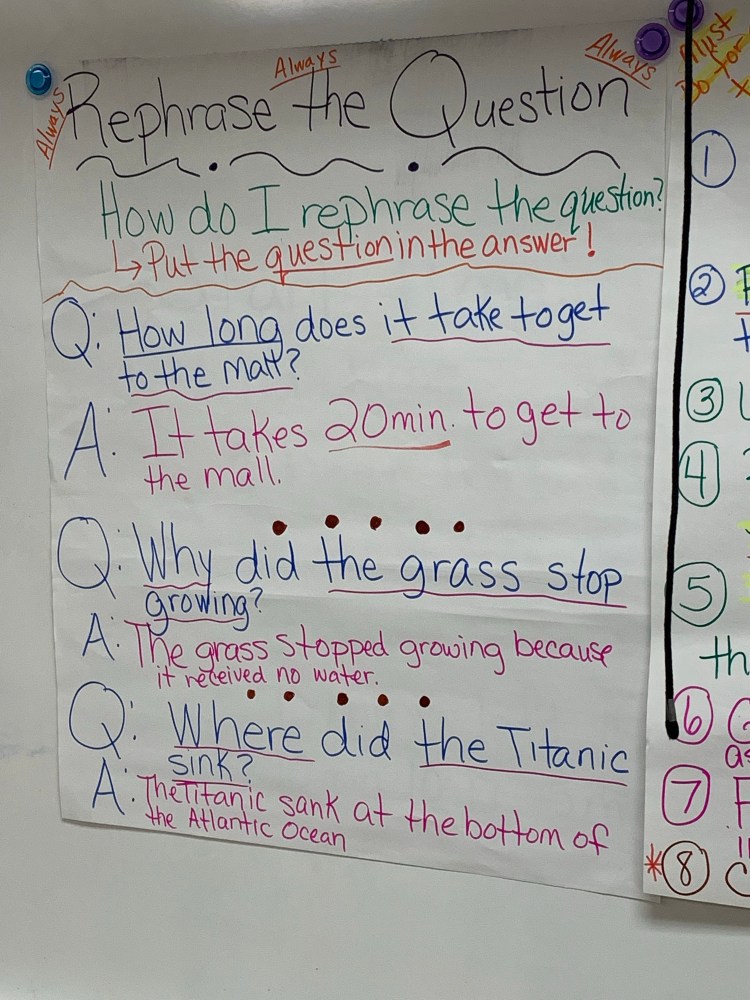 Always
Always
Always
Rephrase the Question
How do I rephrase the question?
↳ Put the question in the answer!
Q: How long does it take to get
to the mall?
A: It takes 20min. to get to
the mall.
Q: Why did the grass stop
growing?
A: The grass stopped growing because
it received no water.
Q: Where did the Titanic
sink?
A: The Titanic sank at the bottom of
the Atlantic Ocean
Must
Do for
1
2
3
4
5
th
6
as
7
*8